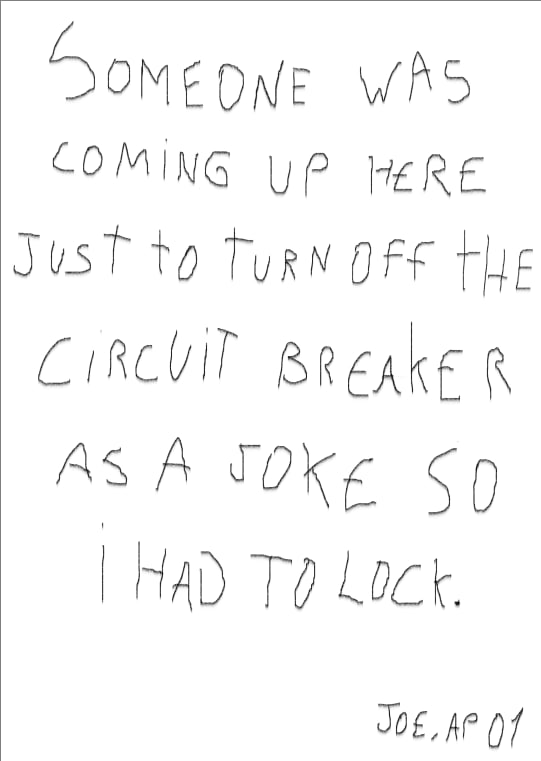 SOMEONE WAS
COMING UP HERE
JUST TO TURN OFF THE
CIRCUIT BREAKER
AS A JOKE SO
I HAD TO LOCK.
JOE. AP 01